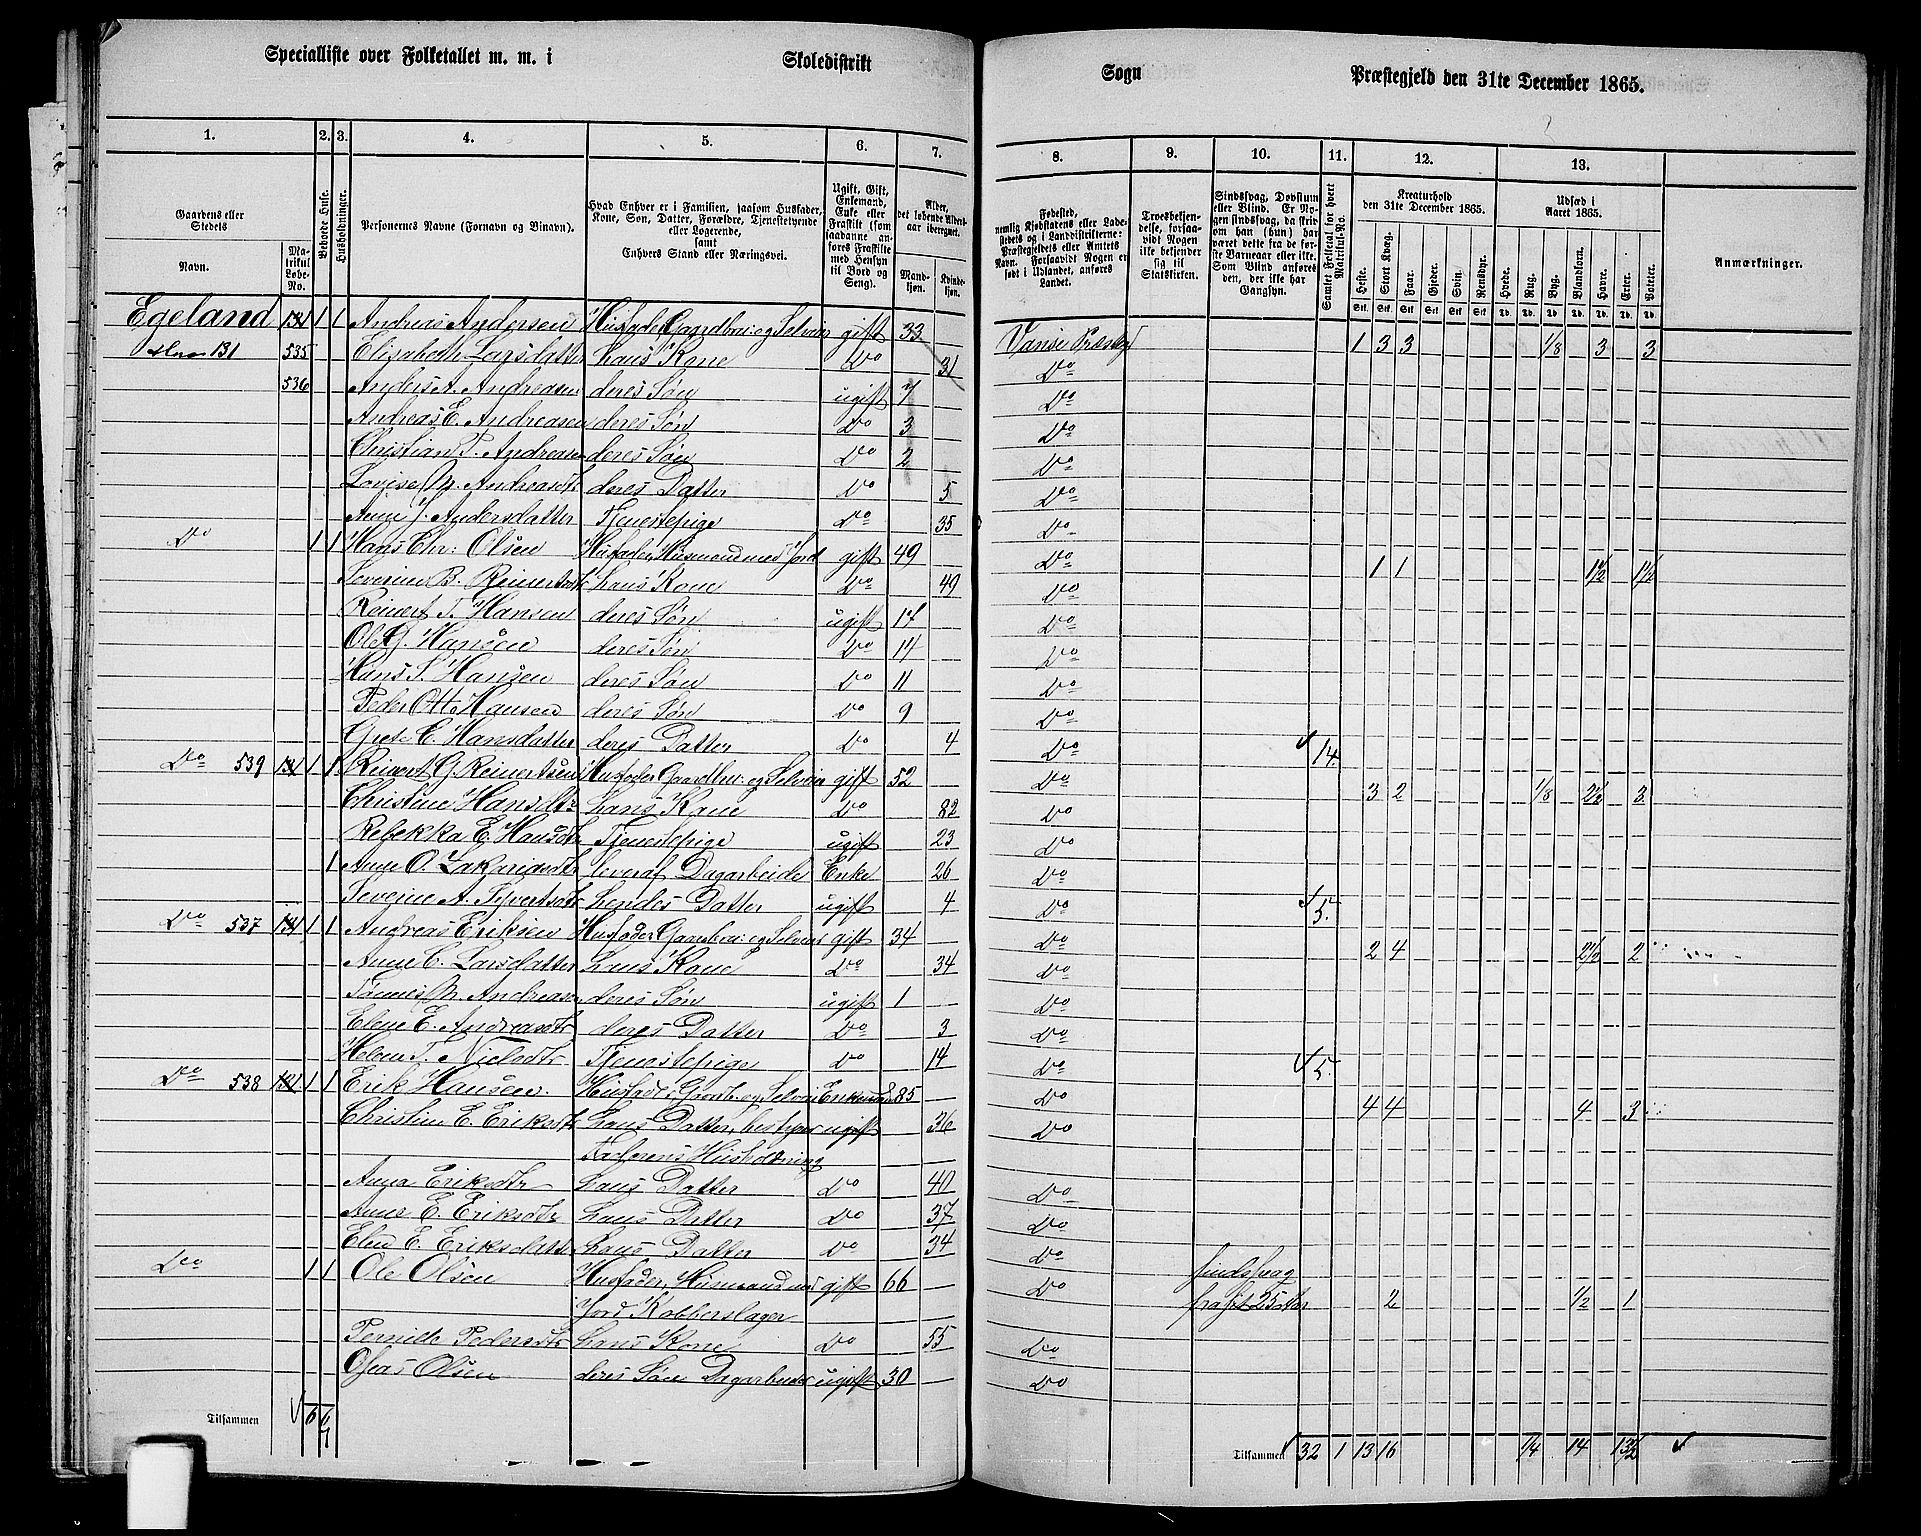 Specialliste over Folketallet m. m. i Skoledistrikt Sogn Præstegjeld den 31te December 1865.
1. 2. 3. 4. 5. 6. 7. 8. 9. 10. 11. 12. 13.
Gaardens eller Stedets
Navn.
Matrikul Løbe-No.
Beboede Huse.
Husholdninger.
Personernes Navne (Fornavn og Binavn).
Hvad Enhver er i Familien, saasom Husfader, Kone, Søn, Datter, Forældre, Tjenestetyende eller Logerende,
samt
Enhvers Stand eller Næringsvei.
Ugift, Gift, Enkemand, Enke eller Fraskilt (som saadanne anføres Fraskilte med Hensyn til Bord og Seng).
Alder, det løbende Aldersaar iberegnet.
Mandkjøn. Kvindekjøn.
Fødested, nemlig Kjøbstadens eller Ladestedets og i Landdistrikterne: Præstegjeldets eller Amtets Navn. Forsaavidt Nogen er født i Udlandet, anføres Landet.
Troesbekjendelse, forsaavidt Nogen ikke bekjender sig til Statskirken.
Sindssvag, Døvstum eller Blind. Er Nogen sindssvag, da skrives om han (hun) har været dette fra de første Barneaar eller ikke. Som Blind anføres den, der ikke har Gangsyn.
Samlet Folketal for hvert Matrikul-No.
Kreaturhold den 31te December 1865.
Heste. Stort Kvæg. Faar. Gjeder. Svin. Rensdyr.
Udsæd i Aaret 1865.
Hvede. Rug. Byg. Blandkorn. Havre. Erter. Poteter.
Anmærkninger.
Egeland 131 1 1 Andreas Andersen Husfader Gaardbru: og Selveier gift 33 Vanse Præstegj 1 3 3 1/8 3 3
131 535 Elisabeth Larsdatter hans Kone Do 31 Do
536 Anders A. Andreasen deres Søn ugift 7 Do
Andreas E. Andreasen deres Søn Do 3 Do
Christian T. Andreasen deres Søn Do 2 Do
Lovise M. Andreasdtr deres Datter Do 5 Do
Anne J. Andersdatter Tjenestepige Do 35 Do
Do 1 1 Hans Chr: Olsen Husfader, Husmand med Jord gift 49 Do 1 1 1½ 1½
Severine B. Reinertsdtr hans Kone Do 49 Do
Reinert T. Hansen deres Søn ugift 17 Do
Ole G. Hansen deres Søn Do 14 Do
Hans S. Hansen deres Søn Do 11 Do
Peder Otto Hansen deres Søn Do 9 Do
Grete C. Hansdatter deres Datter Do 4 Do 14.
Do 539 131 1 1 Reinert G. Reinertsen Husfader Gaardbru: og Selveier gift 52 Do 3 2 1/8 2½ 3
Christine Hansdtr hans Kone Do 82 Do
Rebekka E. Hansdtr Tjenestepige ugift 23 Do
1 Anne O. Zakariasdtr lever af Dagarbeide Enke 26 Do
Severine A. Syvertsdtr hendes Datter ugift 4 Do 5.
Do 537 131 1 1 Andreas Eriksen Husfader, Gaardbru: og Selveier gift 34 Do 2 4 2½ 2
Anne C. Larsdatter hans Kone Do 34 Do
Tønnes M. Andreasen deres Søn ugift 1 Do
Elene E. Andreasdtr deres Datter Do 3 Do
Helene T. Nielsdtr Tjenestepige Do 14 Do 5
Do 538 131 1 1 Erik Hansen Husfader, Gaardb. og Selveier Enkemand 85 Do 4 4 4 3
Christine E. Eriksdtr hans Datter, bestyrer ugift 36 Do
Faderens Husholdning
Anna Eriksdtr hans Datter Do 40 Do
Anne E. Eriksdtr hans Datter Do 37 Do
Elen E. Eriksdatter hans Datter Do 34 Do
Do 1 1 Ole Olsen Husfader, Husmand med gift 66 Do sindssvag
Jord Kobberslager fra sit 25 Aar 2 ½ 1
Pernille Pedersdtr hans Kone Do 55 Do
Ojeas Olsen deres Søn Dagarbeider ugift 30 Do
Tilsammen 6 6 7 Tilsammen 32 1 13 16 1/4 14 13½